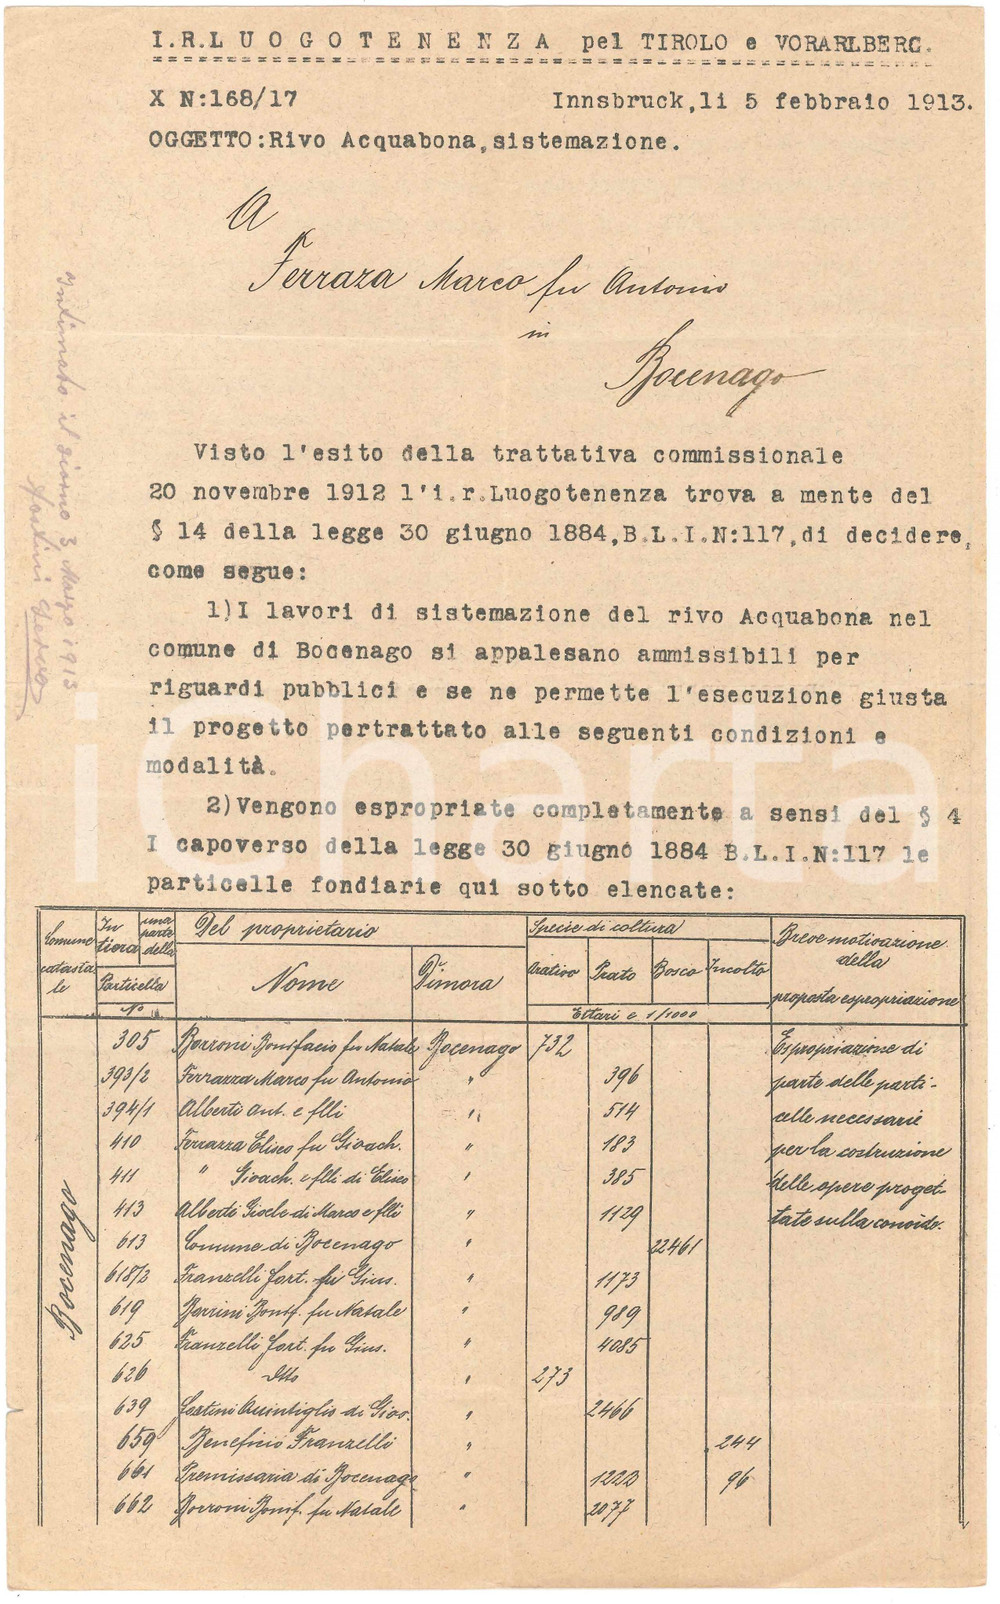 I.R.LUOGOTENENZA pel TIROLO e VORARLBERG.
X N:168/17
Innsbruck,li 5 febbraio 1913.
OGGETTO:Rivo Acquabona,sistemazione.
A
Ferraza Marco fu Antonio
in
Bocenago
Intimato il giorno 3 Marzo 1913
Visto l'esito della trattativa commissionale
20 novembre 1912 l'i.r.Luogotenenza trova a mente del
§ 14 della legge 30 giugno 1884,B.L.I.N:117,di decidere,
come segue:
1)I lavori di sistemazione del rivo Acquabona nel
comune di Bocenago si appalesano ammissibili per
riguardi pubblici e se ne permette l'esecuzione giusta
il progetto pertrattato alle seguenti condizioni e
modalità.
2)Vengono espropriate completamente a sensi del § 4
I capoverso della legge 30 giugno 1884 B.L.I.N:117 le
particelle fondiarie qui sotto elencate:
Comune catastale
In tiora
una parte della
Particella
No
Del proprietario
Nome
Dimora
Specie di coltura
Arativo Prato Bosco Incolto
Ettari e 1/1000
Breve motivazione
della
proposta espropriazione
Bocenago
305 Borroni Bonifacio fu Natale Bocenago 732 Espropriazione di
393/2 Ferrazza Marco fu Antonio " 396 parte delle parti-
394/1 Alberti Ant. e flli " 514 celle necessarie
410 Ferrazza Eliseo fu Gioach. " 183 per la costruzione
411 " Gioach. e flli di Eliseo " 385 delle opere proget-
413 Alberti Gioele di Marco e flli " 1129 tate sulla conoide.
613 Comune di Bocenago " 22461
618/2 Franzelli Fort. fu Gius. " 1173
619 Borrini Bonif. fu Natale " 989
625 Franzelli Fort. fu Gius. " 4085
626 dtto " 273
639 Quintiglio di Giov. " 2466
659 Beneficio Franzelli " 244
661 Premissaria di Bocenago " 1223 96
662 Borroni Bonif. fu Natale " 2077